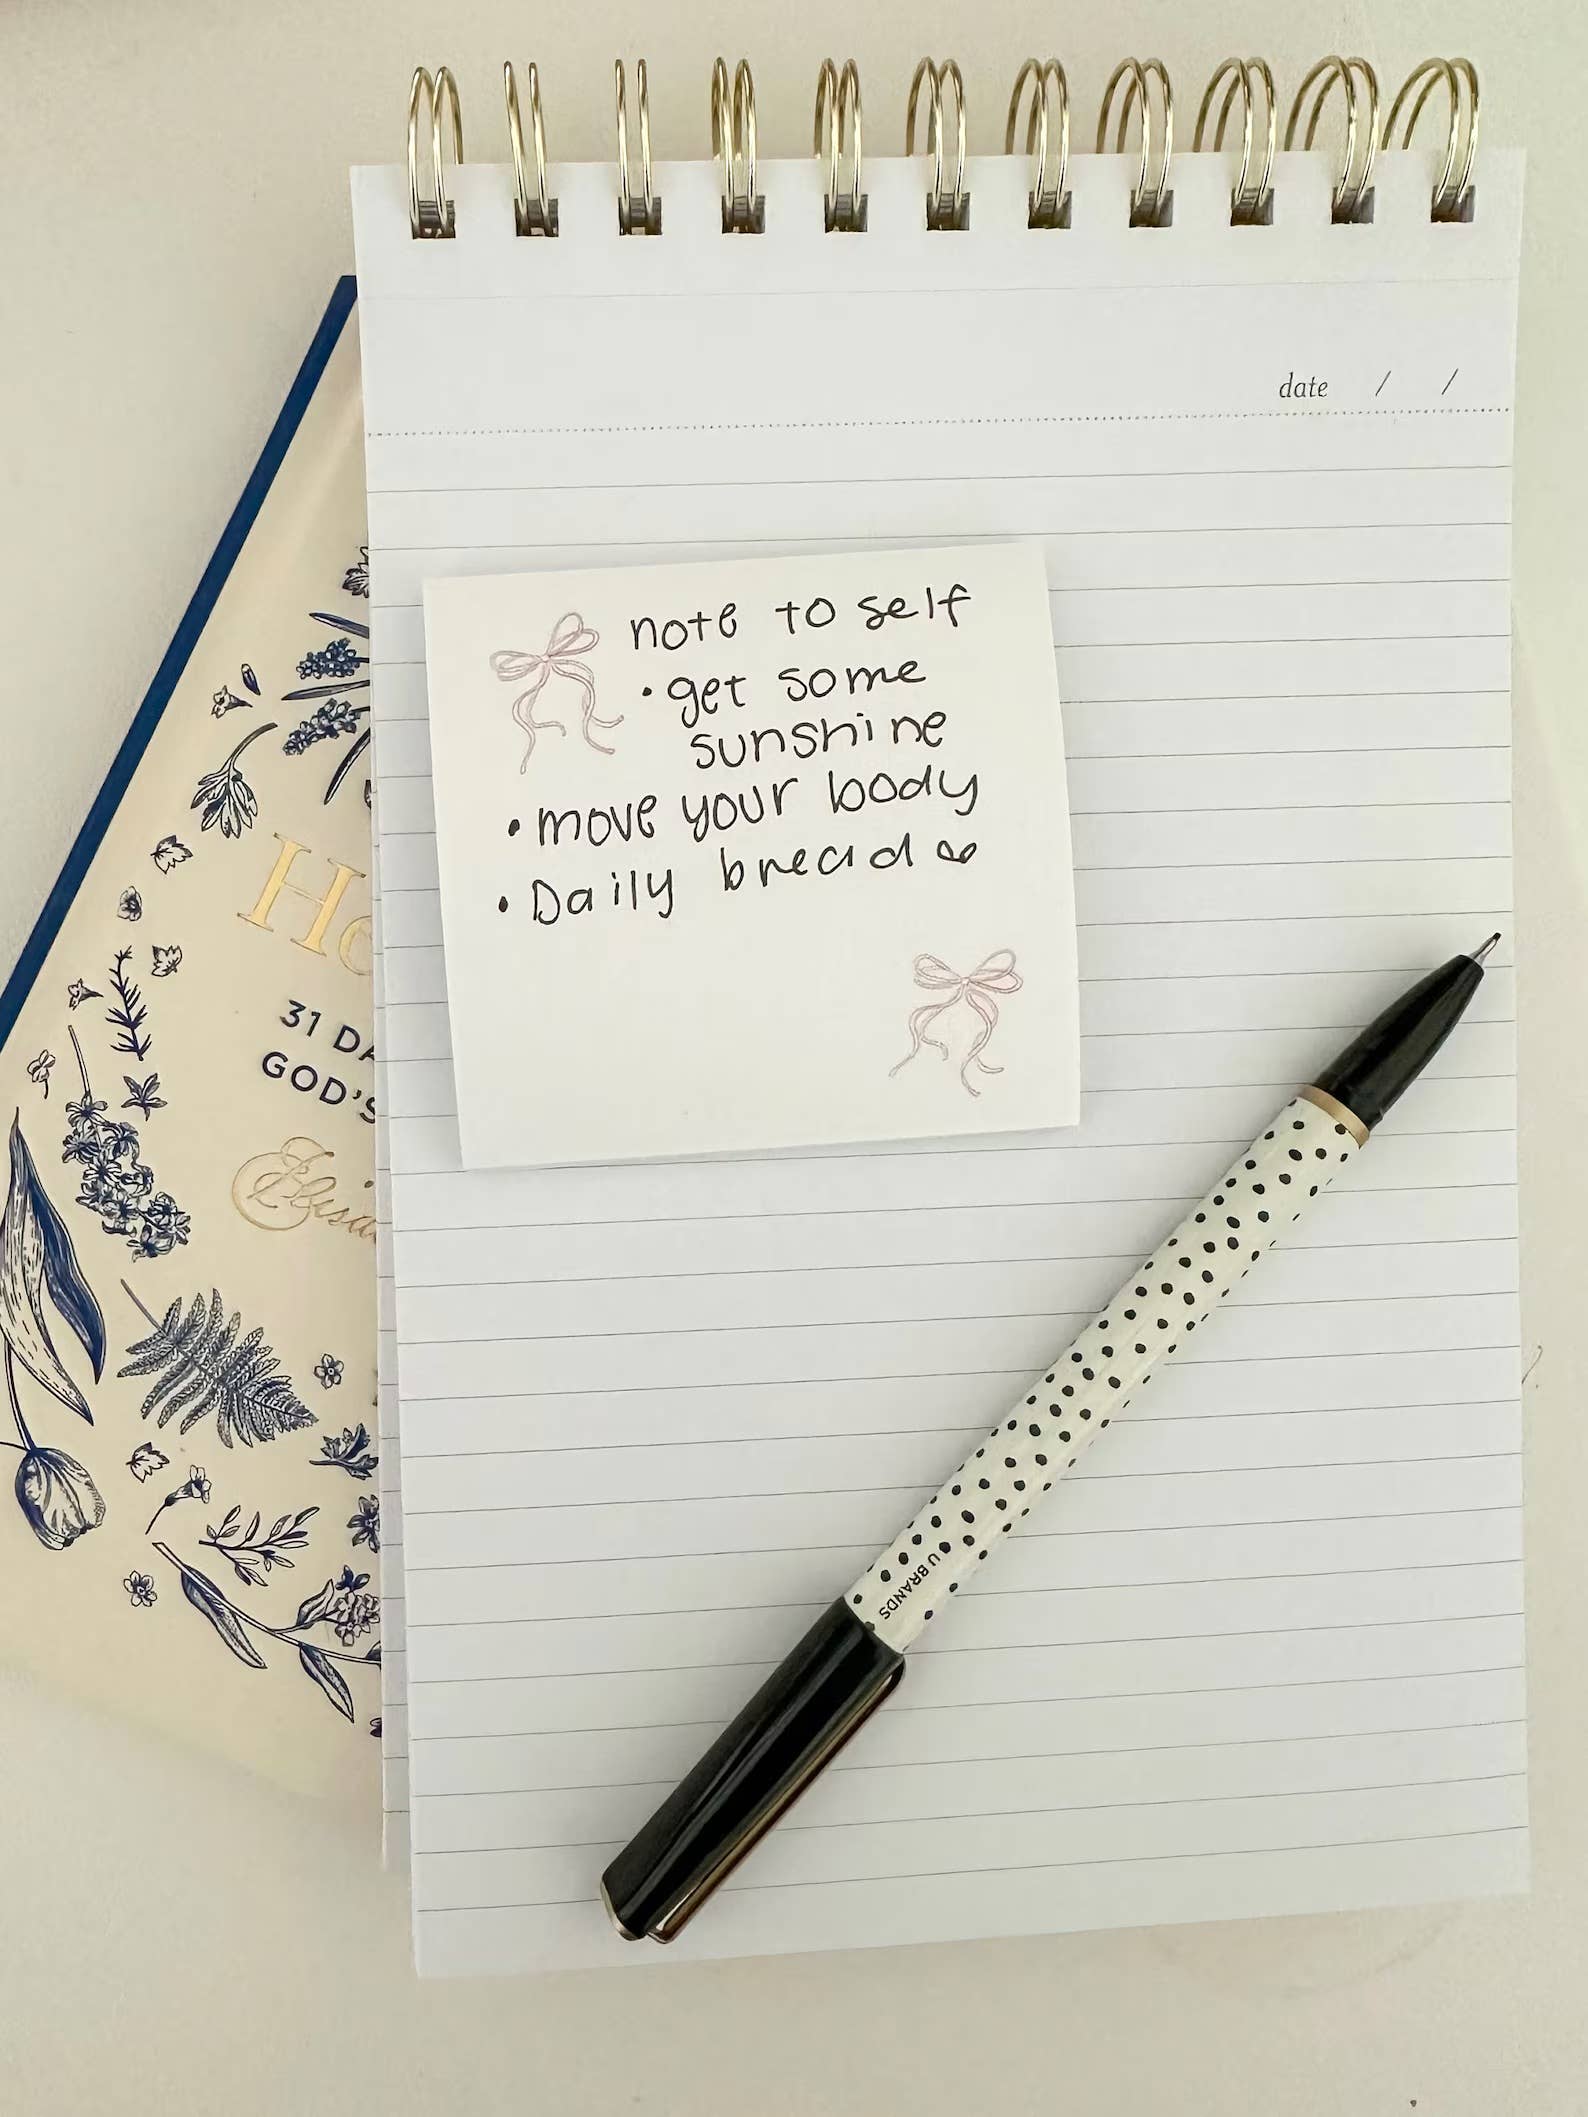 date / /
note to self
• get some
sunshine
• move your body
• Daily bread
31
GOD'S
U BRANDS